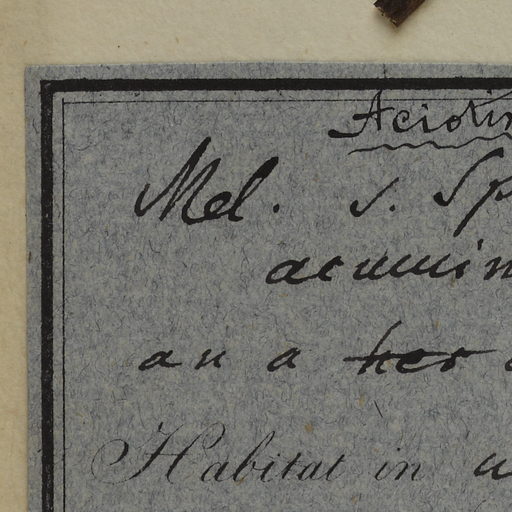 Aciotis
Mel. s. Sp
acumin
an a her
Habitat in